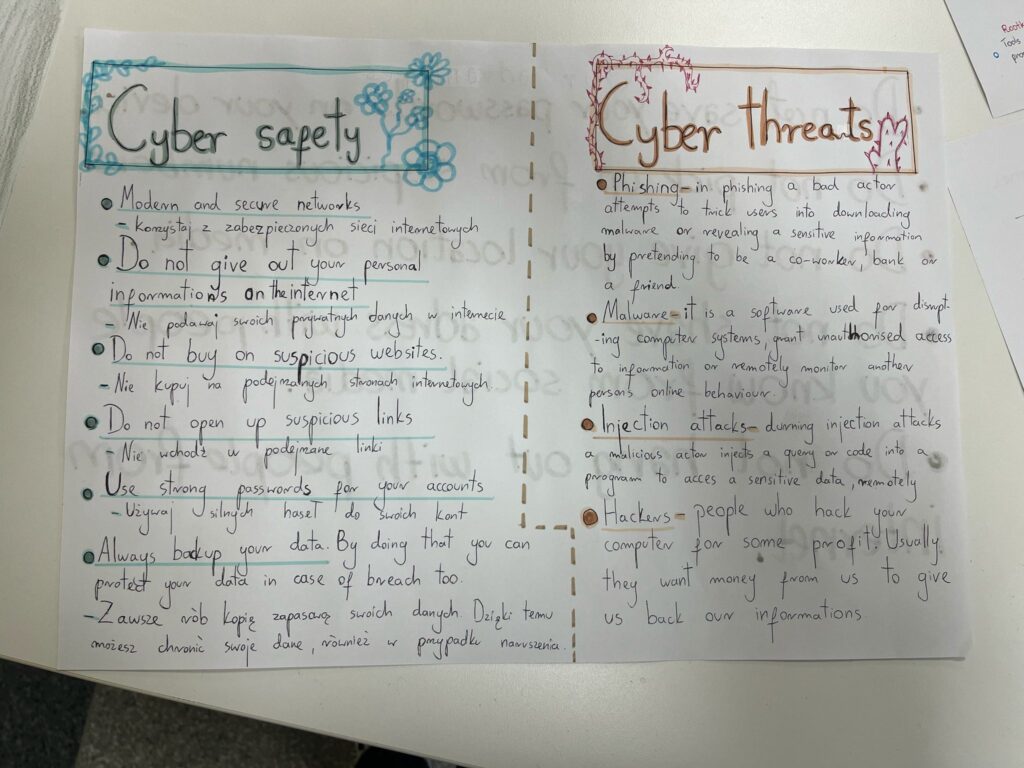 Cyber safety
Modern and secure networks
- Korzystaj z zabezpieczonych sieci internetowych
Do not give out your personal
informations on the internet
- Nie podawaj swoich prywatnych danych w internecie
Do not buy on suspicious websites.
- Nie kupuj na podejrzalnych stronach internetowych.
Do not open up suspicious links
- Nie wchodź w podejrzane linki
Use strong passwords for your accounts
- Używaj silnych haseł do swoich kont
Always backup your data. By doing that you can
protect your data in case of breach too.
- Zawsze rób kopię zapasową swoich danych. Dzięki temu
możesz chronić swoje dane, również w przypadku naruszenia.
Cyber threats
Phishing - in phishing a bad actor
attempts to trick users into downloading
malware or revealing a sensitive information
by pretending to be a co-worker, bank or
a friend.
Malware - it is a software used for disrupt-
-ing computer systems, grant unauthorised access
to information or remotely monitor another
person's online behaviour
Injection attacks - durning injection attacks
a malicious actor injects a query or code into a
program to acces a sensitive data, remotely
Hackers - people who hack your
computer for some profit. Usually
they want money from us to give
us back our informations
Tools